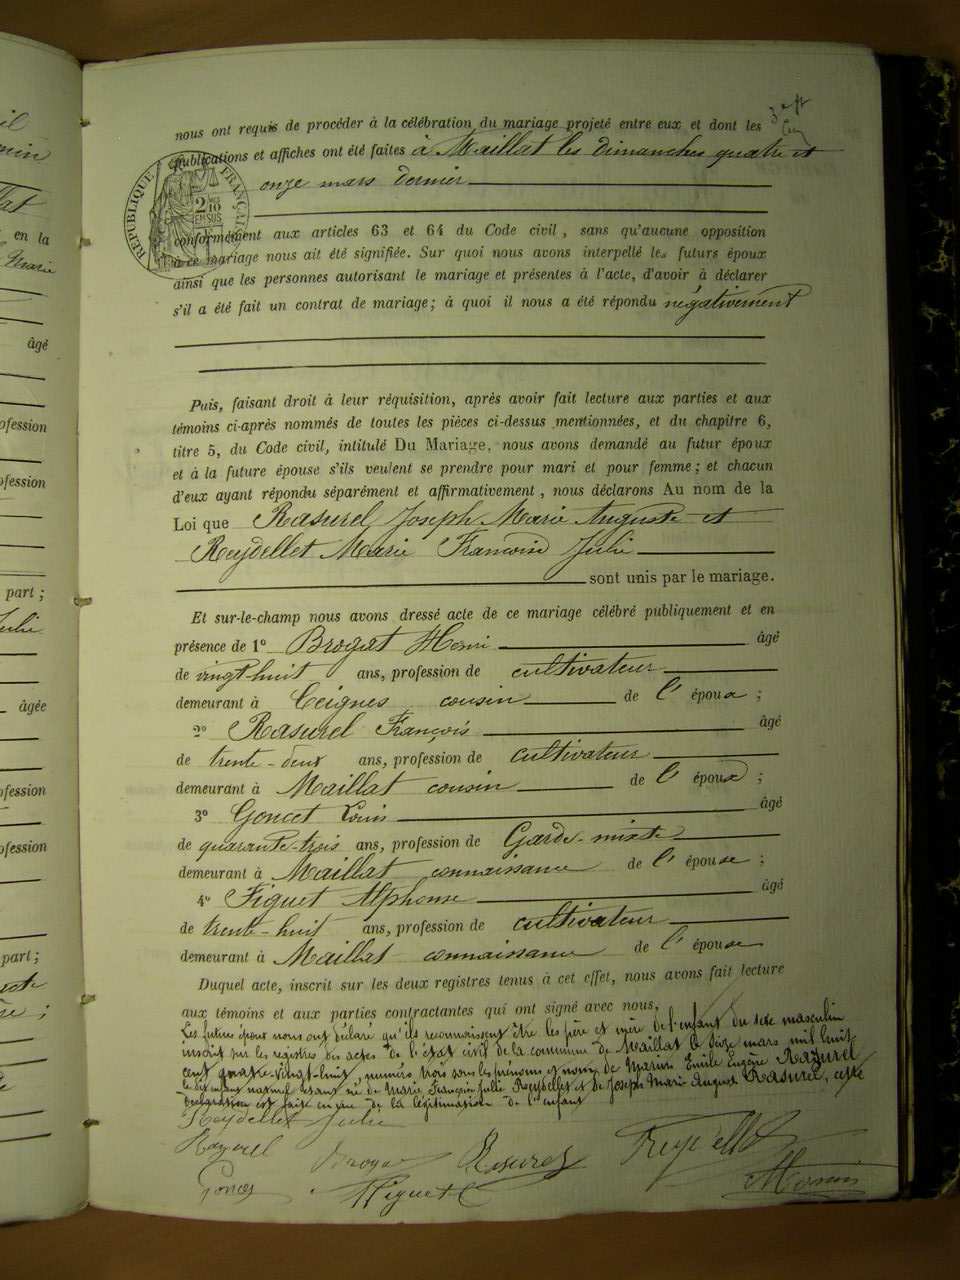 nous ont requis de procéder à la célébration du mariage projeté entre eux et dont les
publications et affiches ont été faites à Maillat les dimanches quatre et
onze mars dernier
RÉPUBLIQUE FRANÇAISE
2/10 EN SUS
conformément aux articles 63 et 64 du Code civil, sans qu'aucune opposition
à ce mariage nous ait été signifiée. Sur quoi nous avons interpellé les futurs époux
ainsi que les personnes autorisant le mariage et présentes à l'acte, d'avoir à déclarer
s'il a été fait un contrat de mariage; à quoi il nous a été répondu négativement
Puis, faisant droit à leur réquisition, après avoir fait lecture aux parties et aux
témoins ci-après nommés de toutes les pièces ci-dessus mentionnées, et du chapitre 6,
titre 5, du Code civil, intitulé Du Mariage, nous avons demandé au futur époux
et à la future épouse s'ils veulent se prendre pour mari et pour femme; et chacun
d'eux ayant répondu séparément et affirmativement, nous déclarons Au nom de la
Loi que Rasurel Joseph Marie Auguste et
Reydellet Marie Françoise Julie
sont unis par le mariage.
Et sur-le-champ nous avons dressé acte de ce mariage célébré publiquement et en
présence de 1º Brogat Henri âgé
de vingt-huit ans, profession de cultivateur
demeurant à Ceignes cousin de l'époux;
2º Rasurel François âgé
de trente-deux ans, profession de cultivateur
demeurant à Maillat cousin de l'époux;
3º Goncet Louis âgé
de quarante-trois ans, profession de Garde-mixte
demeurant à Maillat connaissance de l'épouse;
4º Figuet Alphonse âgé
de trente-huit ans, profession de cultivateur
demeurant à Maillat connaissance de l'épouse
Duquel acte, inscrit sur les deux registres tenus à cet effet, nous avons fait lecture
aux témoins et aux parties contractantes qui ont signé avec nous,
Les futurs époux nous ont déclaré qu'ils reconnaissent être les père et mère de l'enfant du sexe masculin
inscrit sur les registres des actes de l'état civil de la commune de Maillat le seize mars mil huit
cent quatre-vingt-huit, numéro trois sous les prénoms et noms de Marius Emile Eugène Rasurel
né de Marie Françoise Julie Reydellet et de Joseph Marie Auguste Rasurel, cette
déclaration est faite en vue de la légitimation de l'enfant
Reydellet Julie
Rasurel Brogat Rasurel Reydellet
Goncet Figuet